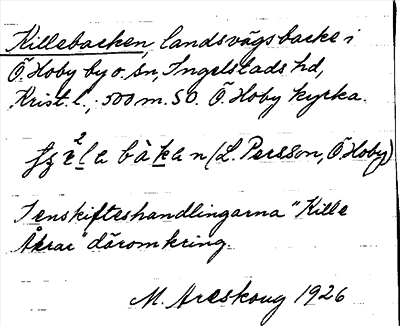 Killebacken, landsvägsbacke i
Ö. Hoby by o. sn, Ingelstads hd,
Krist. l., 500 m. SO. Ö. Hoby kyrka.
(L. Persson, Ö Hoby)
I enskifteshandlingarna "Kille
Åkrar" däromkring.
M. Areskoug 1926